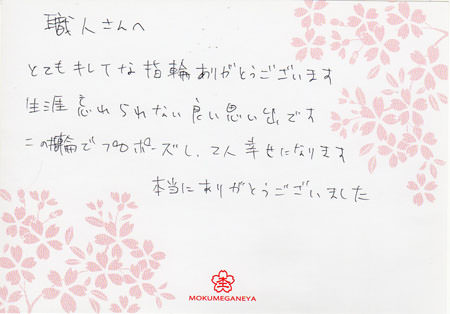 職人さんへ
とてもキレイな指輪ありがとうございます
生涯忘れられない良い思い出です
この指輪でプロポーズし、2人幸せになります
本当にありがとうございました
MOKUMEGANEYA